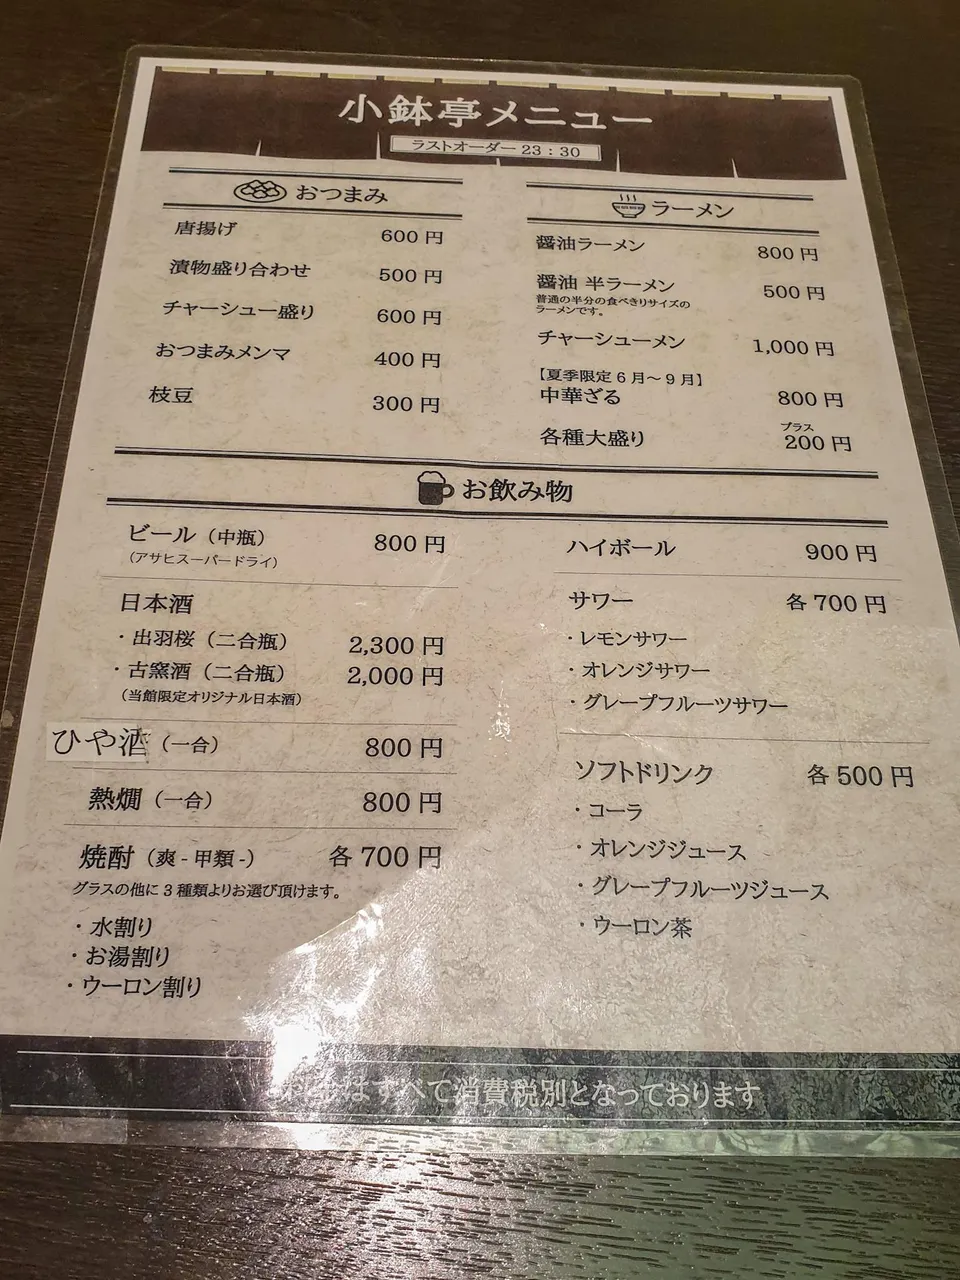 小鉢亭メニュー
ラストオーダー 23：30
おつまみ
唐揚げ 600 円
漬物盛り合わせ 500 円
チャーシュー盛り 600 円
おつまみメンマ 400 円
枝豆 300 円
ラーメン
醤油ラーメン 800 円
醤油 半ラーメン 500 円
普通の半分の食べきりサイズの
ラーメンです。
チャーシューメン 1,000 円
【夏季限定 6 月～ 9 月】
中華ざる 800 円
プラス
各種大盛り 200 円
お飲み物
ビール（中瓶） 800 円
（アサヒスーパードライ）
日本酒
・出羽桜（二合瓶） 2,300 円
・古窯酒（二合瓶） 2,000 円
（当館限定オリジナル日本酒）
ひや酒（一合） 800 円
熱燗（一合） 800 円
焼酎（爽 - 甲類 -） 各 700 円
グラスの他に 3 種類よりお選び頂けます。
・水割り
・お湯割り
・ウーロン割り
ハイボール 900 円
サワー 各 700 円
・レモンサワー
・オレンジサワー
・グレープフルーツサワー
ソフトドリンク 各 500 円
・コーラ
・オレンジジュース
・グレープフルーツジュース
・ウーロン茶
はすべて消費税別となっております